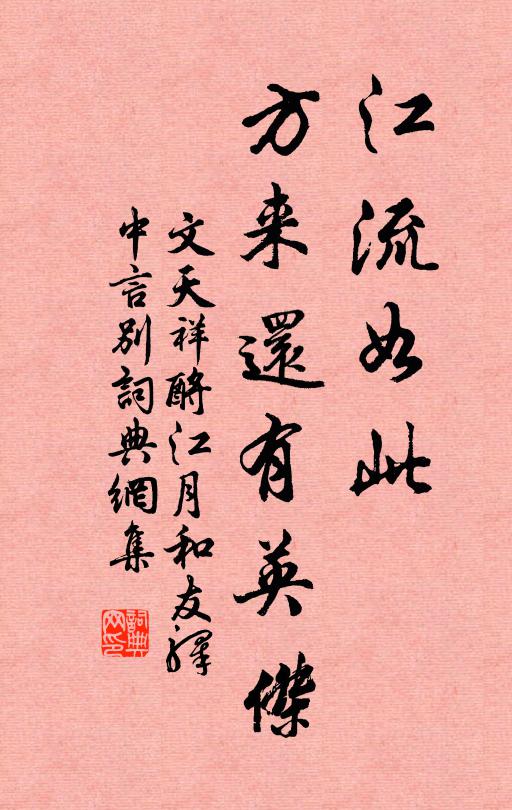 江流如此
方来還有英傑
文天祥酹江月和友驛
中言別詞典網集
詞典
网印